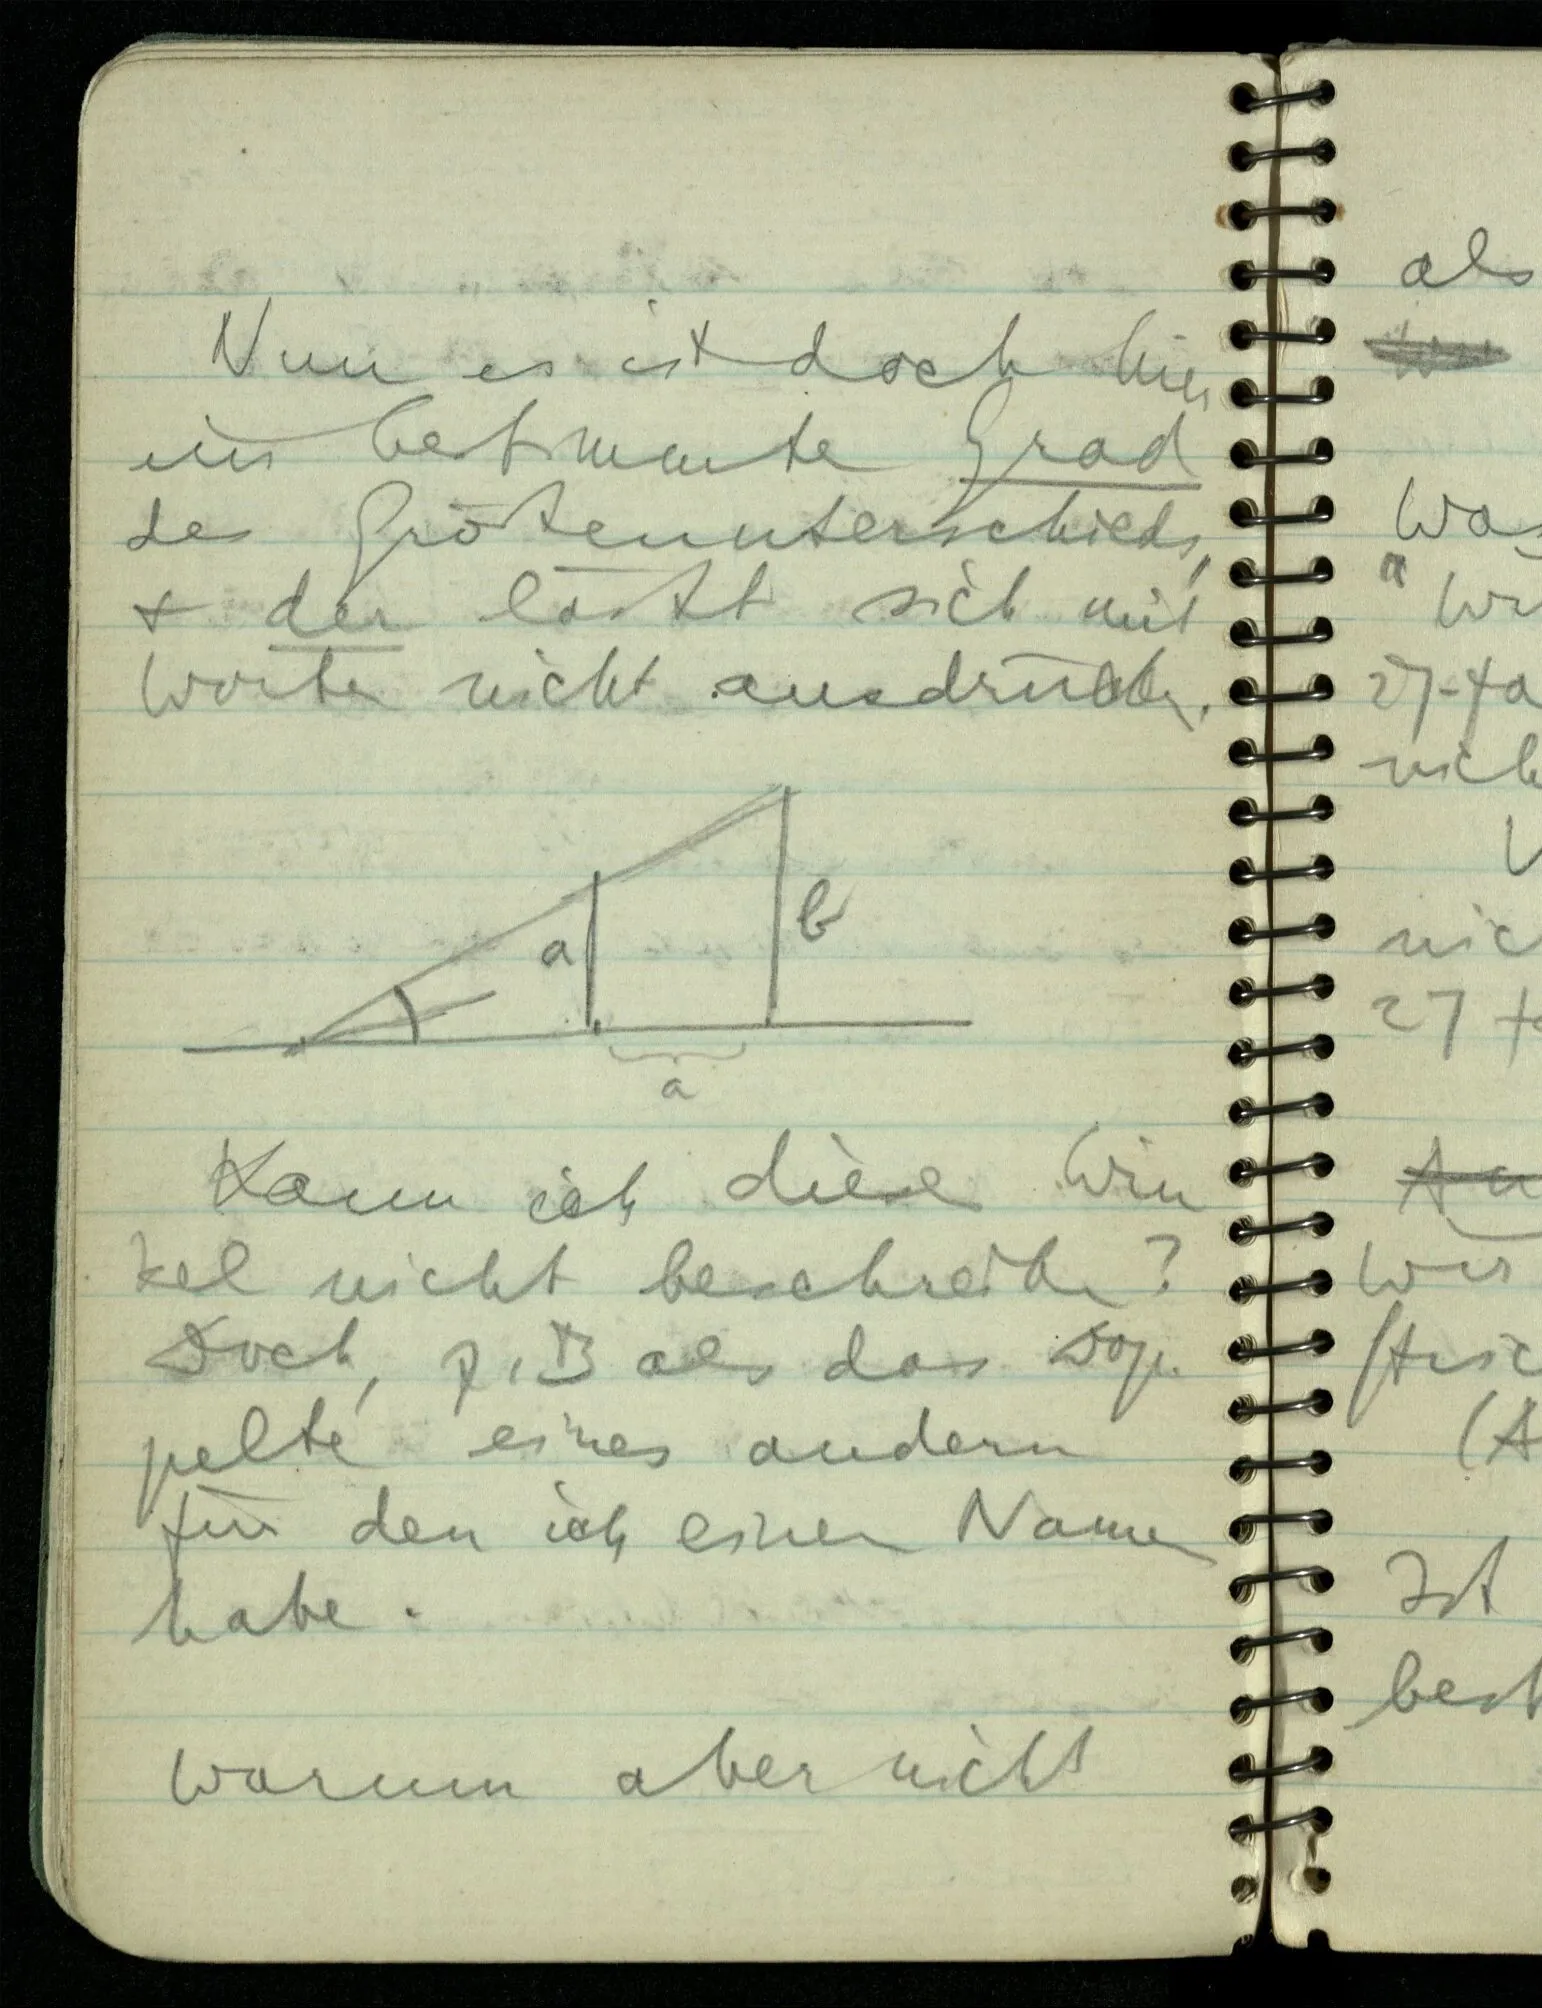 Nun es ist doch hier
ein bestimmte Grad
des Größenunterschieds,
+ der läßt sich mit
Worten nicht ausdrücken.
a
b
a
Kann ich diese Win
kel nicht beschreiben?
Doch, z.B als das Dop-
pelte eines andern
für den ich einen Namen
habe.
warum aber nicht
als
Was
27-fa
nich
nic
27 fa
wir
(A
Ist
best